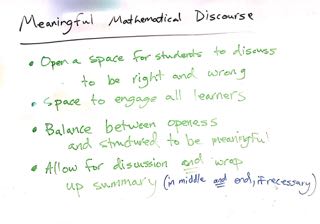 Meaningful Mathematical Discourse
• Open a space for students to discuss
to be right and wrong
• Space to engage all learners
• Balance between openess
and structured to be meaningful
• Allow for discussion and wrap
up summary (in middle and end, if necessary)